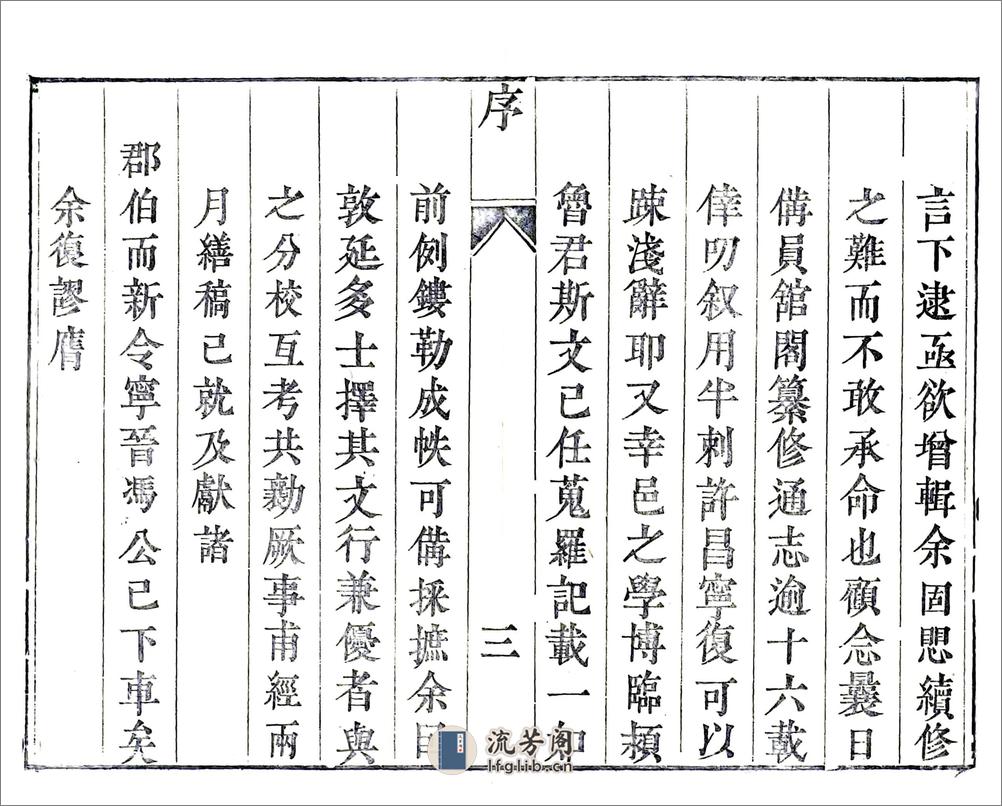 言下逮亟欲增輯余固思續修
之難而不敢承命也顧念曩日
備員舘閣纂修通志逾十六載
倖叨叙用牛刺許昌寧復可以
踈淺辭耶又幸邑之學博臨潁
魯君斯文已任蒐羅記載一如
序
三
前例鏤勒成帙可備採摭余因
敦延多士擇其文行兼優者與
之分校互考共勷厥事甫經兩
月繕稿已就及獻諸
郡伯而新令寧晉馮公已下車矣
余復謬膺
流芳阁
lfglib.cn